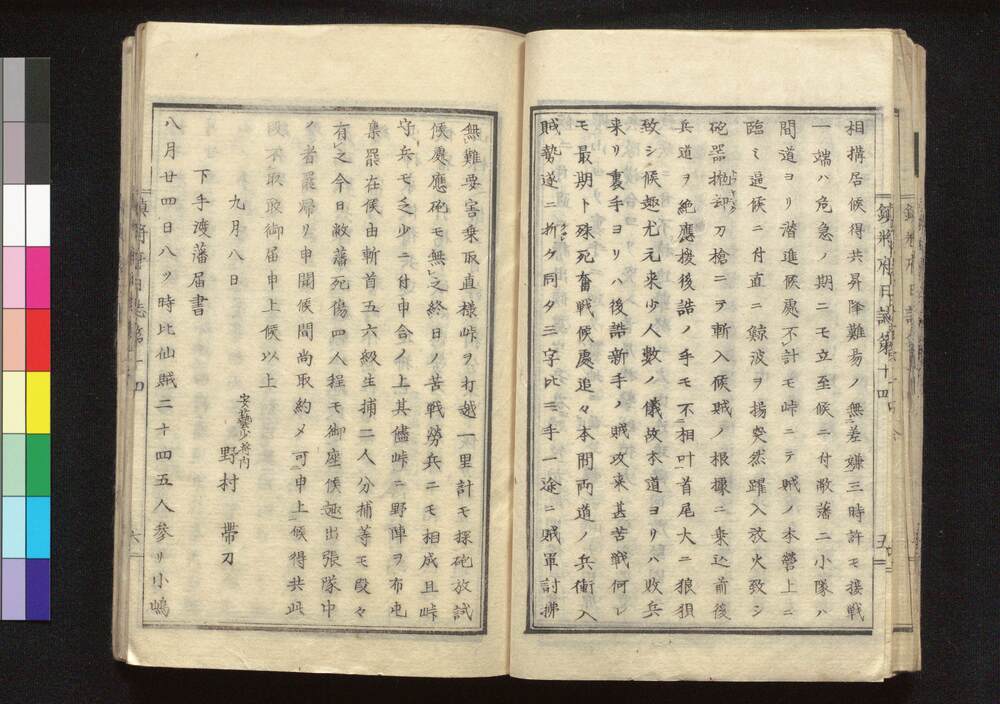 相搆居候得共昇降難易ノ無差嫌三時許モ接戰
一端ハ危急ノ期ニモ立至候ニ付敝藩二小隊ハ
間道ヨリ潜進候處不計モ峠ニテ賊ノ本營上ニ
臨ミ逼候ニ付直ニ鯨波ヲ揚突然躍入放火致シ
砲器抛却刀槍ニテ斬入候賊ノ根據ニ乗込前後
兵道ヲ絶應援後詰ノ手モ不相叶首尾大ニ狼狽
致シ候趣尤元来少人數ノ儀故本道ヨリハ敗兵
来リ裏手ヨリハ後詰新手ノ賊攻来甚苦戰何レ
モ最期ト殊死奮戰候處追々本間両道ノ兵衝入
賊勢遂ニ折ケ同夕三字比三手一途ニ賊軍討拂
鎮將府日誌第十四
五
無難要害乗取直様峠ヲ打越一里計モ探砲放試
候處應砲モ無之終日ノ苦戰勞兵ニモ相成且峠
守兵モ乏少ニ付申合ノ上其儘峠ニ野陣ヲ布屯
集罷在候由斬首五六級生捕二人分捕等モ段々
有之今日敝藩死傷四人程モ御座候趣出張隊中
ノ者罷帰リ申聞候間尚取約メ可申上候得共此
段不取敢御届申上候以上
九月八日
安藝少将内
野村帯刀
下手渡藩届書
八月廿四日八ツ時比仙賊二十四五人参リ小嶋
鎮將府日誌第十四
六